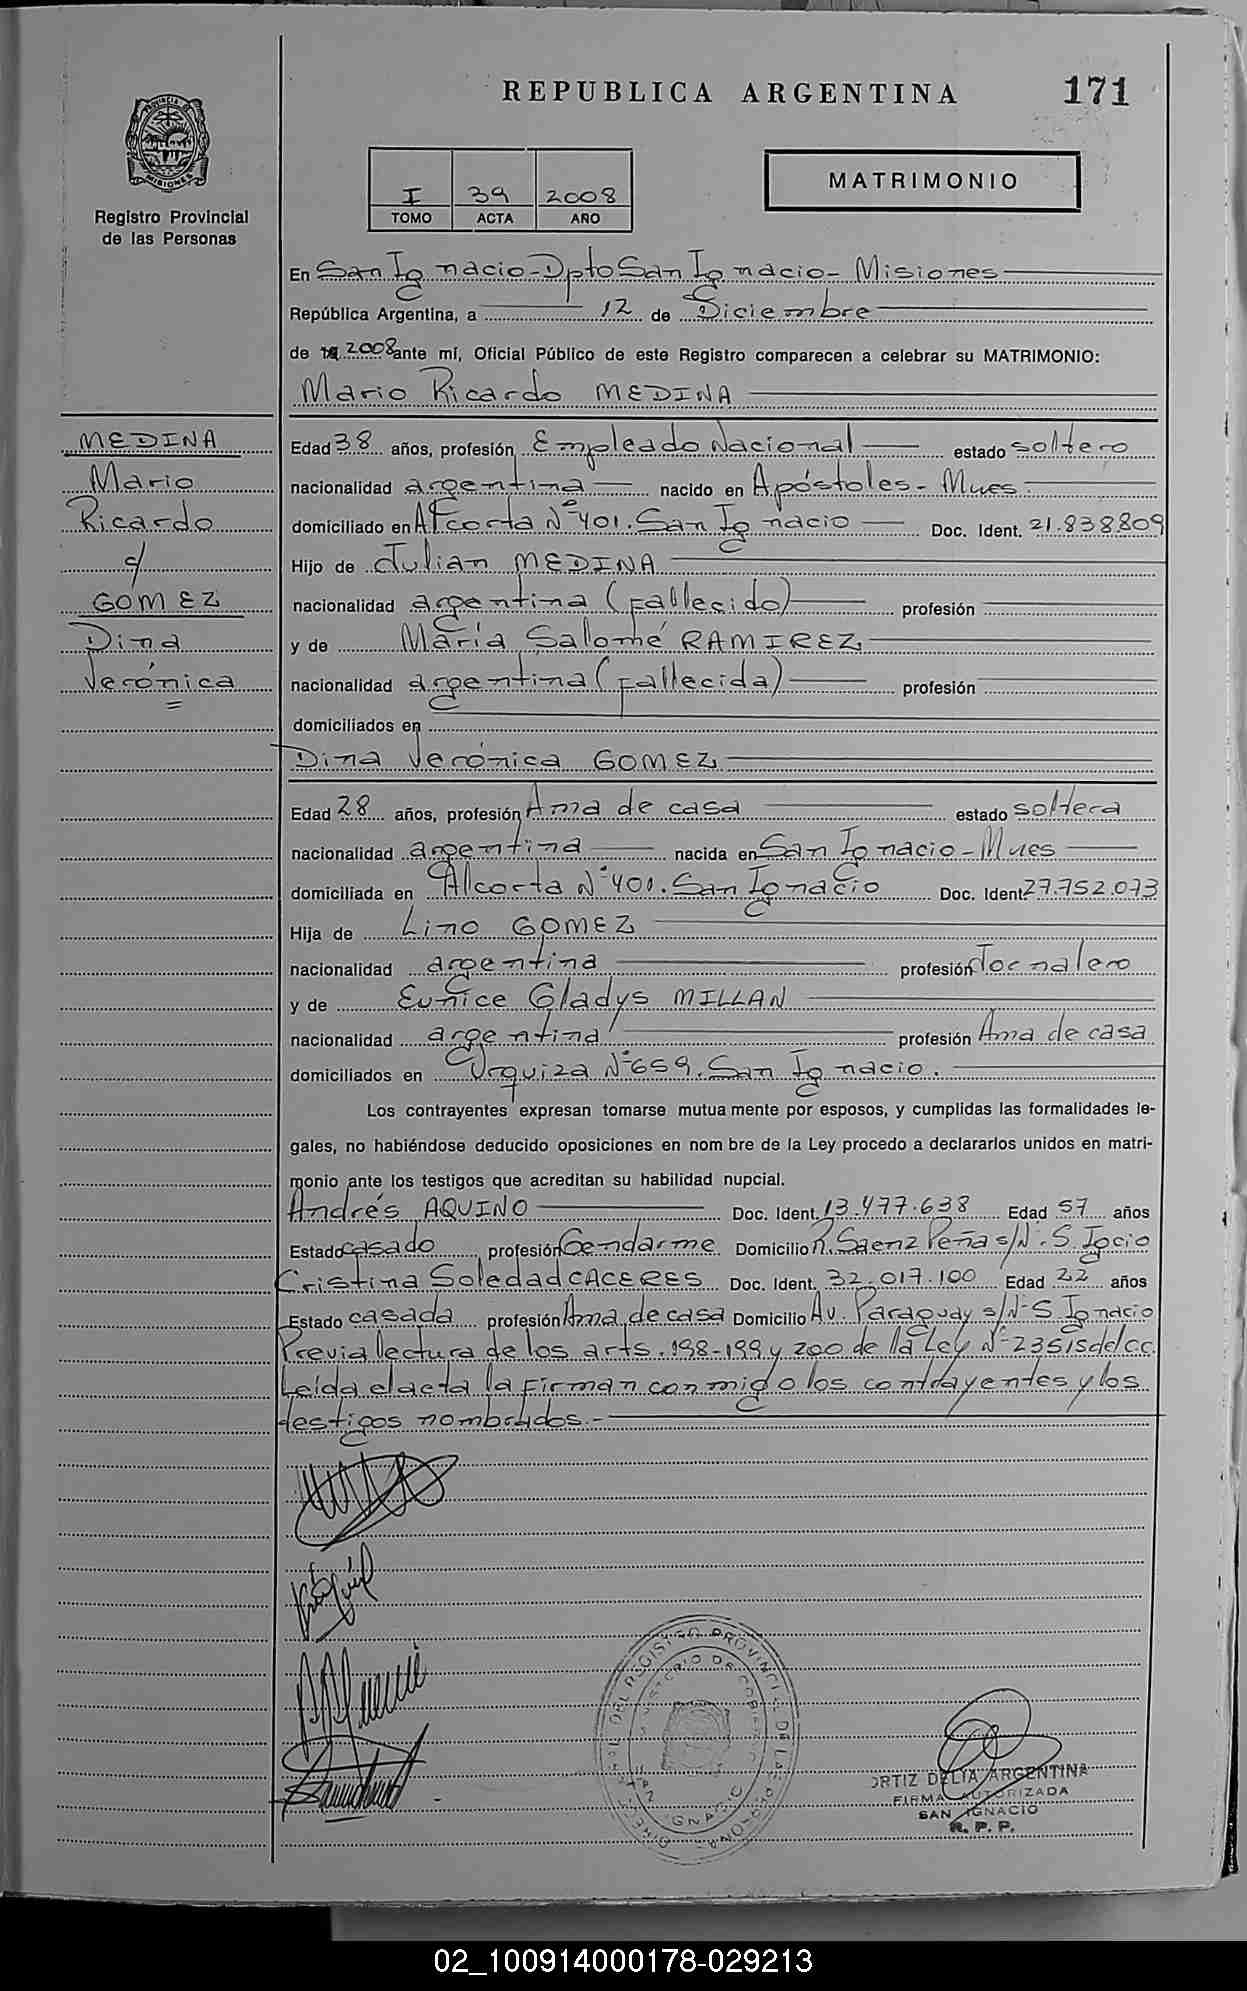 REPUBLICA ARGENTINA
171
PROVINCIA DE
MISIONES
Registro Provincial
de las Personas
I 39 2008
TOMO ACTA AÑO
MATRIMONIO
En San Ignacio-Dpto San Ignacio- Misiones
República Argentina, a 12 de Diciembre
de 2008 ante mí, Oficial Público de este Registro comparecen a celebrar su MATRIMONIO:
Mario Ricardo MEDINA
MEDINA
Mario
Ricardo
c/
GOMEZ
Dina
Verónica
Edad 38 años, profesión Empleado Nacional estado soltero
nacionalidad argentina nacido en Apóstoles- Mnes.
domiciliado en Alcorta Nº401. San Ignacio Doc. Ident. 21.838809
Hijo de Julian MEDINA
nacionalidad argentina (fallecido) profesión
y de María Salomé RAMIREZ
nacionalidad argentina (fallecida) profesión
domiciliados en
Dina Verónica GOMEZ
Edad 28 años, profesión Ama de casa estado soltera
nacionalidad argentina nacida en San Ignacio-Mnes
domiciliada en Alcorta Nº401. San Ignacio Doc. Ident 27.752.073
Hija de Lino GOMEZ
nacionalidad argentina profesión Jornalero
y de Eunice Gladys MILLAN
nacionalidad argentina profesión Ama de casa
domiciliados en Urquiza Nº659. San Ignacio.
Los contrayentes expresan tomarse mutua mente por esposos, y cumplidas las formalidades le-
gales, no habiéndose deducido oposiciones en nom bre de la Ley procedo a declararlos unidos en matri-
monio ante los testigos que acreditan su habilidad nupcial.
Andrés AQUINO Doc. Ident. 13.477.638 Edad 57 años
Estado casado profesión Gendarme Domicilio R. Saenz Peña s/Nº. S. Igcio
Cristina Soledad CACERES Doc. Ident. 32.017.100 Edad 22 años
Estado casada profesión Ama de casa Domicilio Av. Paraguay s/Nº S. Ignacio
Previa lectura de los arts. 198-199 y 200 de la Ley Nº 23515 del C.C.
Leída el acta la firman conmigo los contrayentes y los
testigos nombrados.-
ORTIZ DELIA ARGENTINA
FIRMA AUTORIZADA
SAN IGNACIO
R. P. P.
02_100914000178-029213